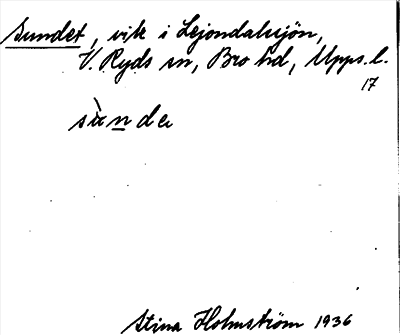 Sundet, vik i Lejondalssjön,
V. Ryds sn, Bro hd, Upps. l.
17
sùnde
Stina Holmström 1936